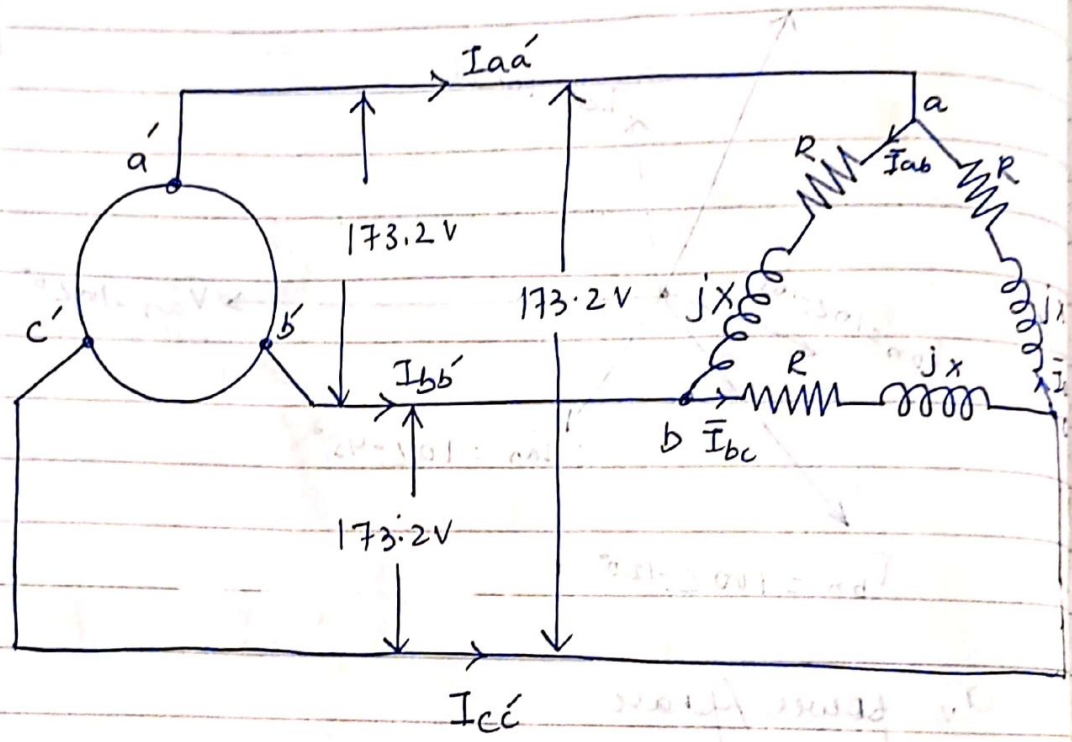 Iaa'
a
a'
R
Iab
R
173.2 V
173.2 V
jX
c'
b'
Ibb'
R
jx
b
Ibc
173.2 V
Icc'